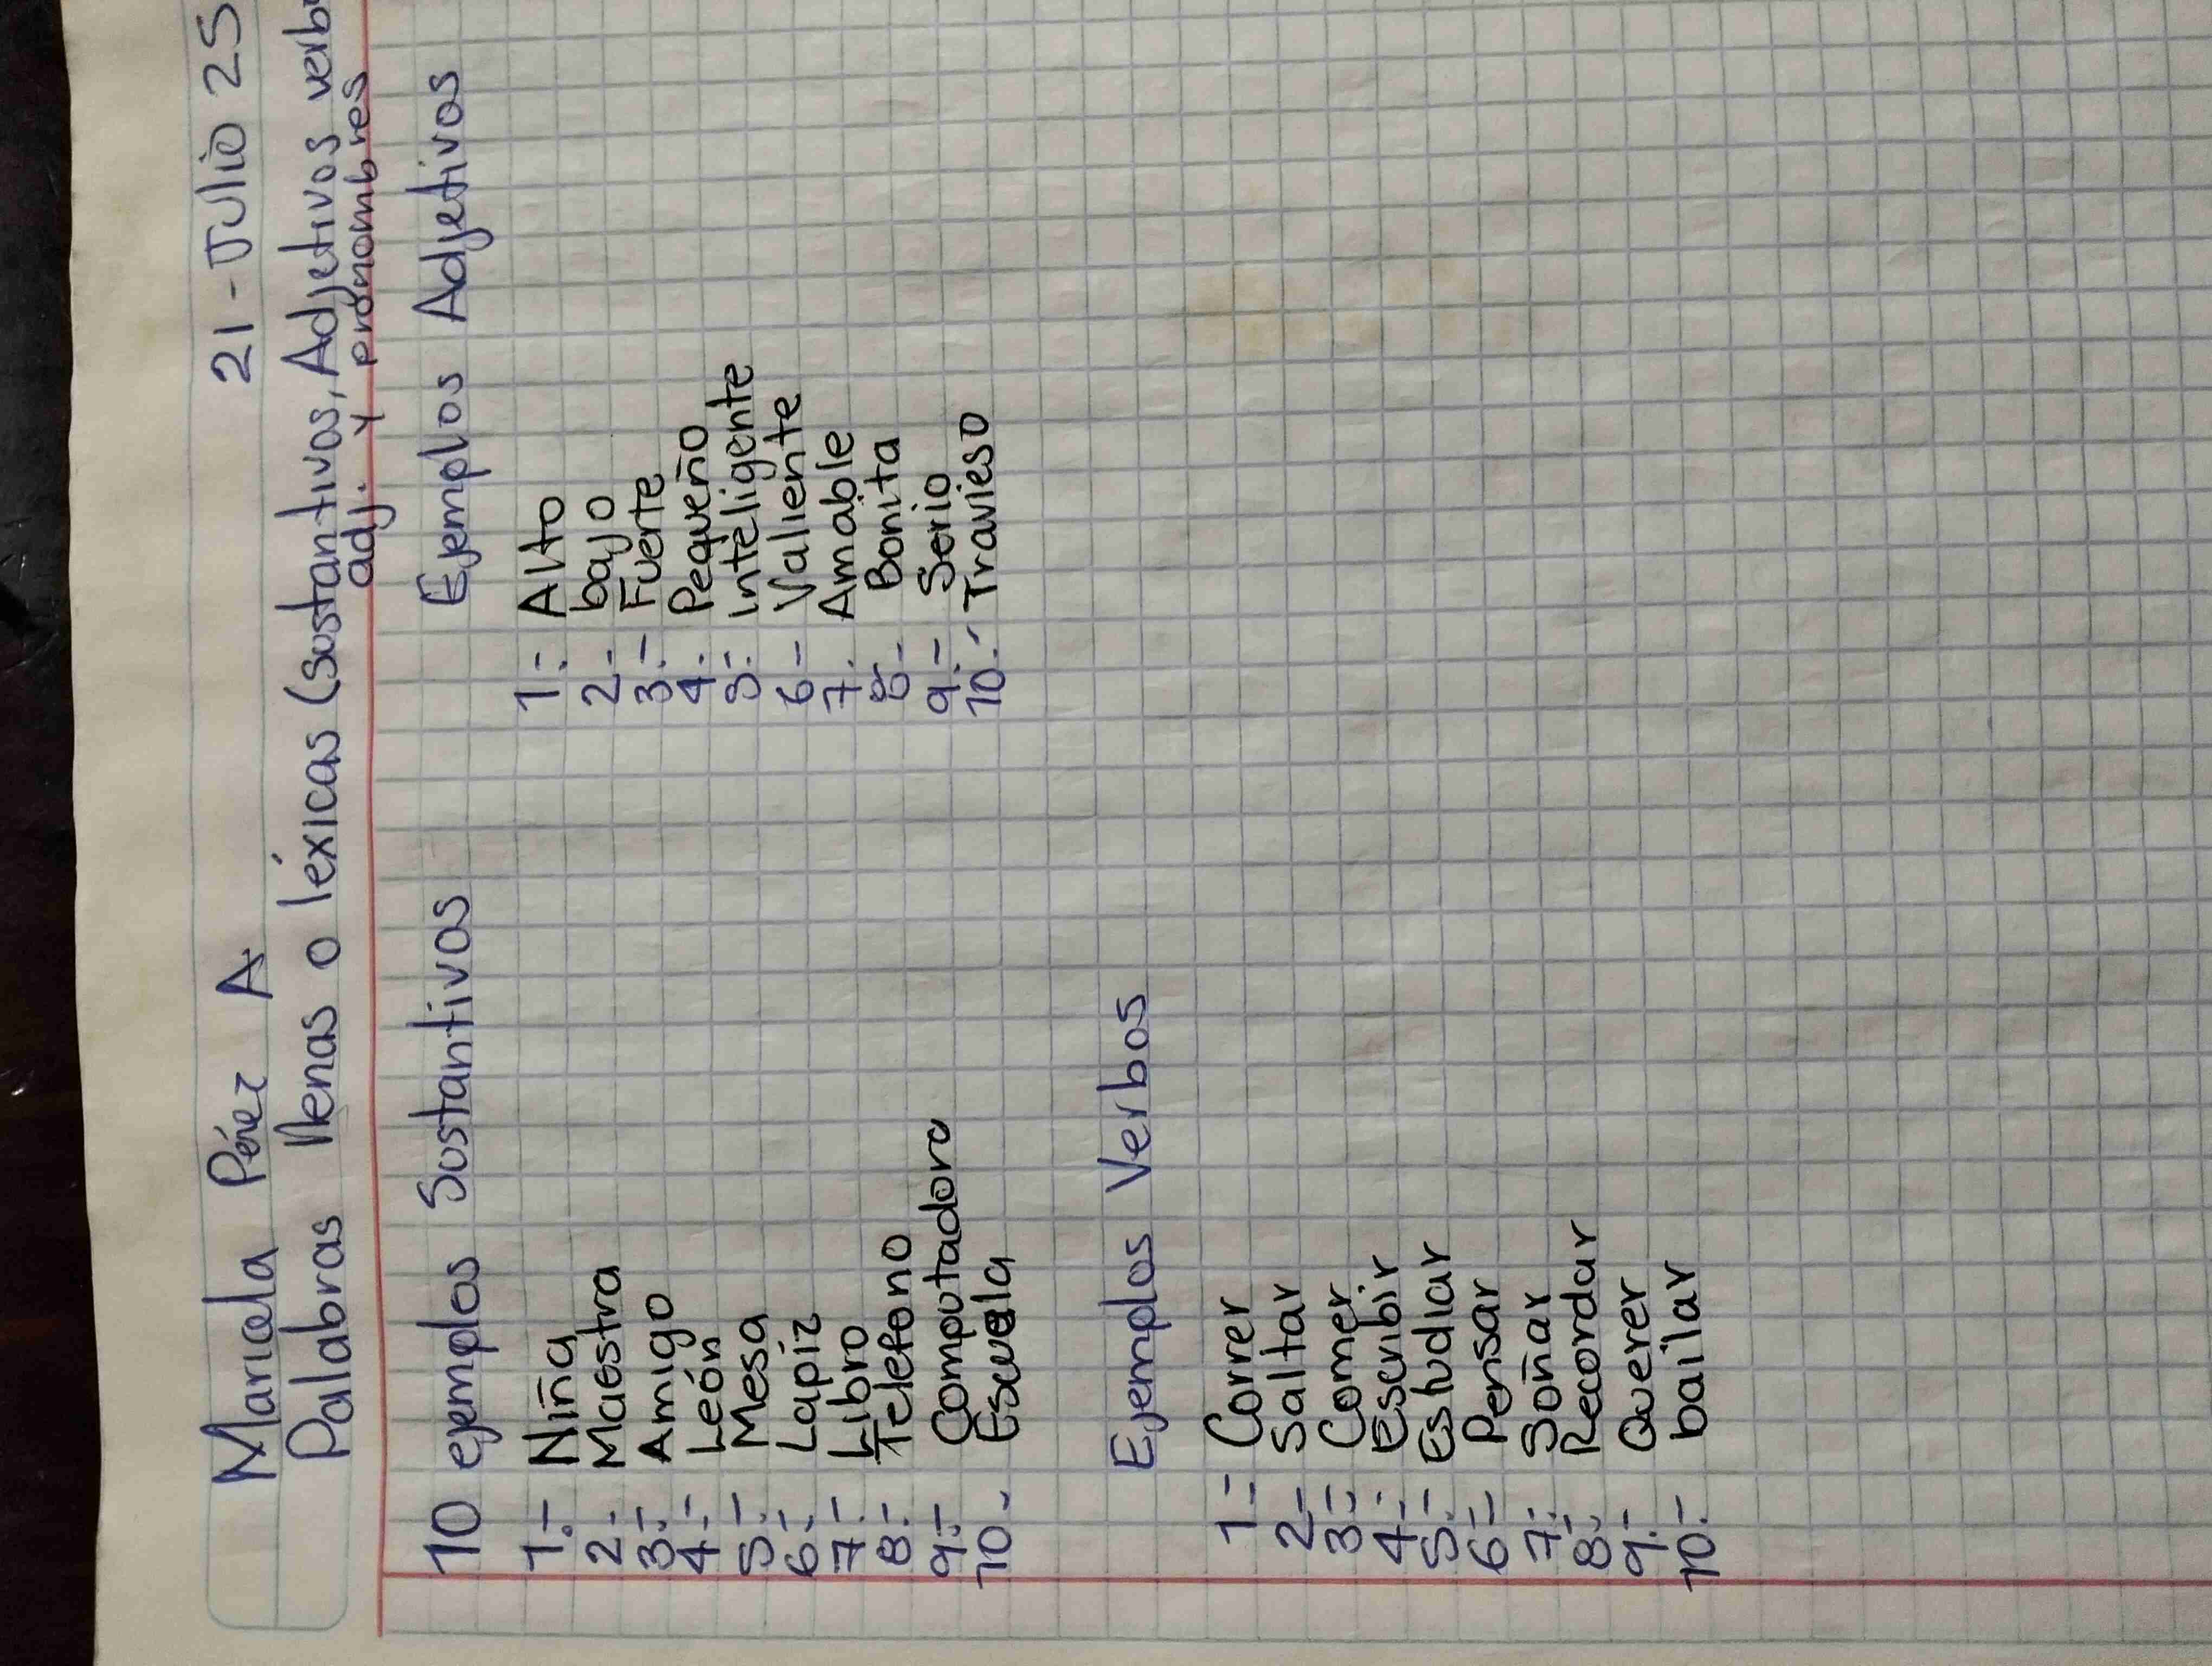 Maricela Pérez A 21-Julio 25
Palabras llenas o léxicas (sustantivos, Adjetivos verb
adj. y pronombres
10 ejemplos Sustantivos
1.- Niña
2.- Maestra
3.- Amigo
4.- León
5.- Mesa
6.- Lapiz
7.- Libro
8.- Telefono
9.- Computadora
10.- Escuela
Ejemplos Adjetivos
1.- Alto
2.- bajo
3.- Fuerte
4.- Pequeño
5.- inteligente
6- Valiente
7. Amable
8- Bonita
9.- Serio
10.- Travieso
Ejemplos Verbos
1.- Correr
2- Saltar
3.- Comer
4.- Escribir
5.- Estudiar
6- Pensar
7.- Soñar
8.- Recordar
9.- Querer
10.- bailar